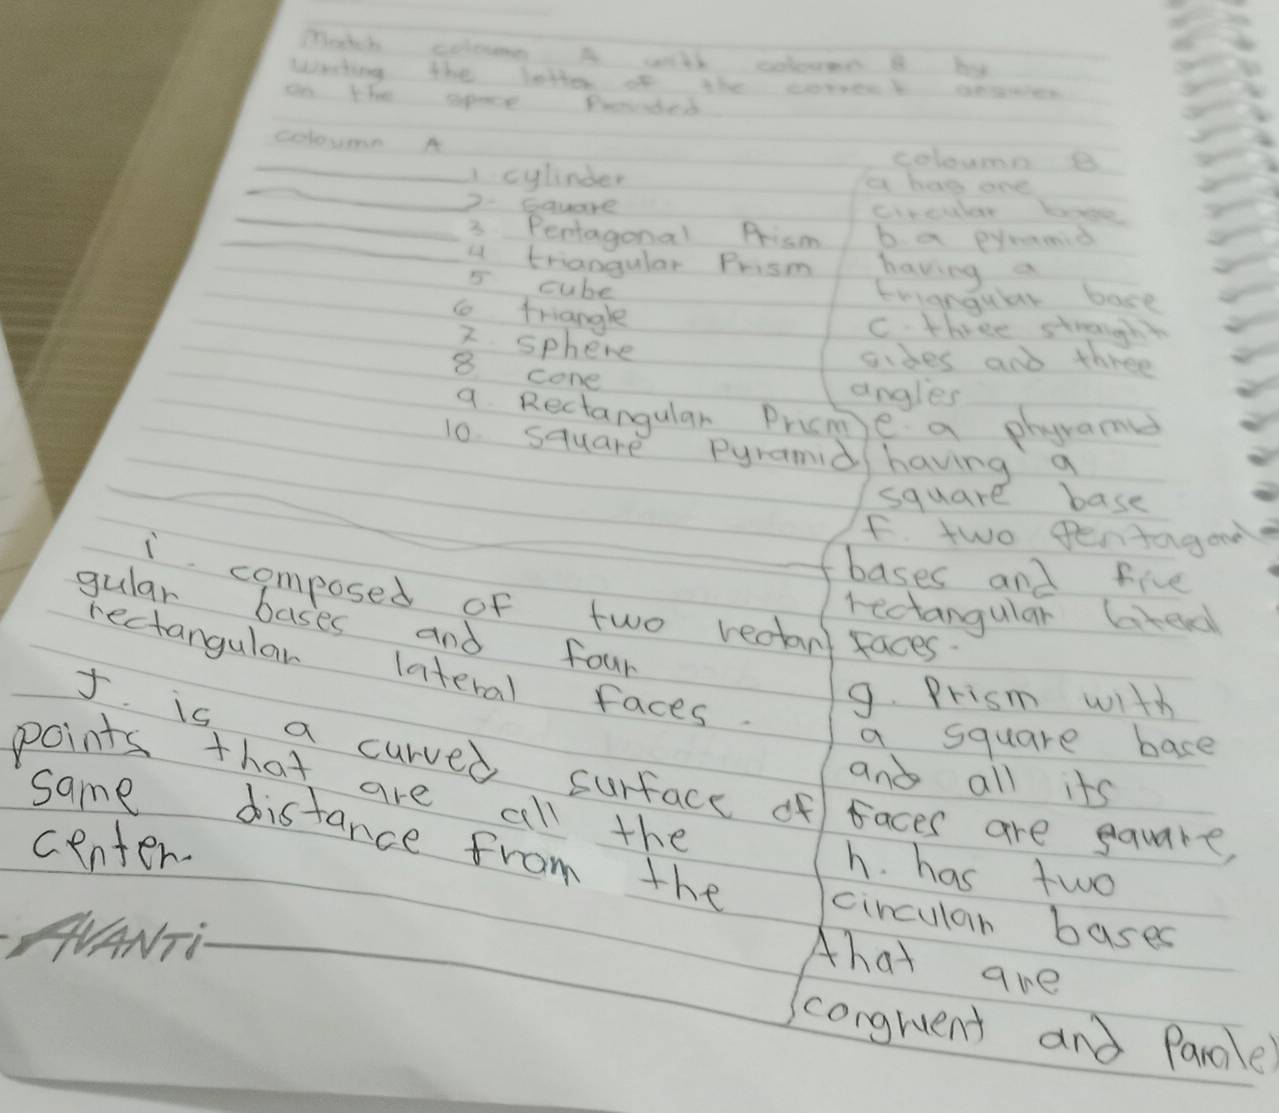 Match coloumn A with coloumn B by
writing the letter of the correct answer
on the space Provided.
coloumn A
1. cylinder
2. square
3 Pentagonal Prism
4 triangular Prism
5 cube
6 triangle
7. sphere
8 cone
9. Rectangular Pricm
10. square Pyramid
coloumn B
a has one
circular base
b. a pyramid
having a
triangular base
c. three straight
sides and three
angles
e. a phyramid
having a
square base
f. two Pentagonal
bases and five
rectangular lateral
faces.
g. Prism with
a square bace
and all its
faces are square,
h. has two
circular bases
that are
congruent and Paralel
i. composed of two rectan
gular bases and four
rectangular lateral faces.
J. is a curved surface of
points that are all the
same distance from the
center.
AVANTi